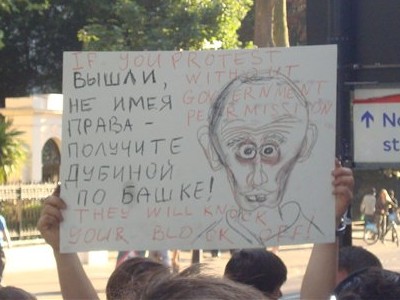 IF YOU PROTEST
WITHOUT
GOVERNMENT
PERMISSION
ВЫШЛИ,
НЕ ИМЕЯ
ПРАВА -
ПОЛУЧИТЕ
ДУБИНОЙ
ПО БАШКЕ!
THEY WILL KNOCK
YOUR BLOCK OFF!
↑ No
st